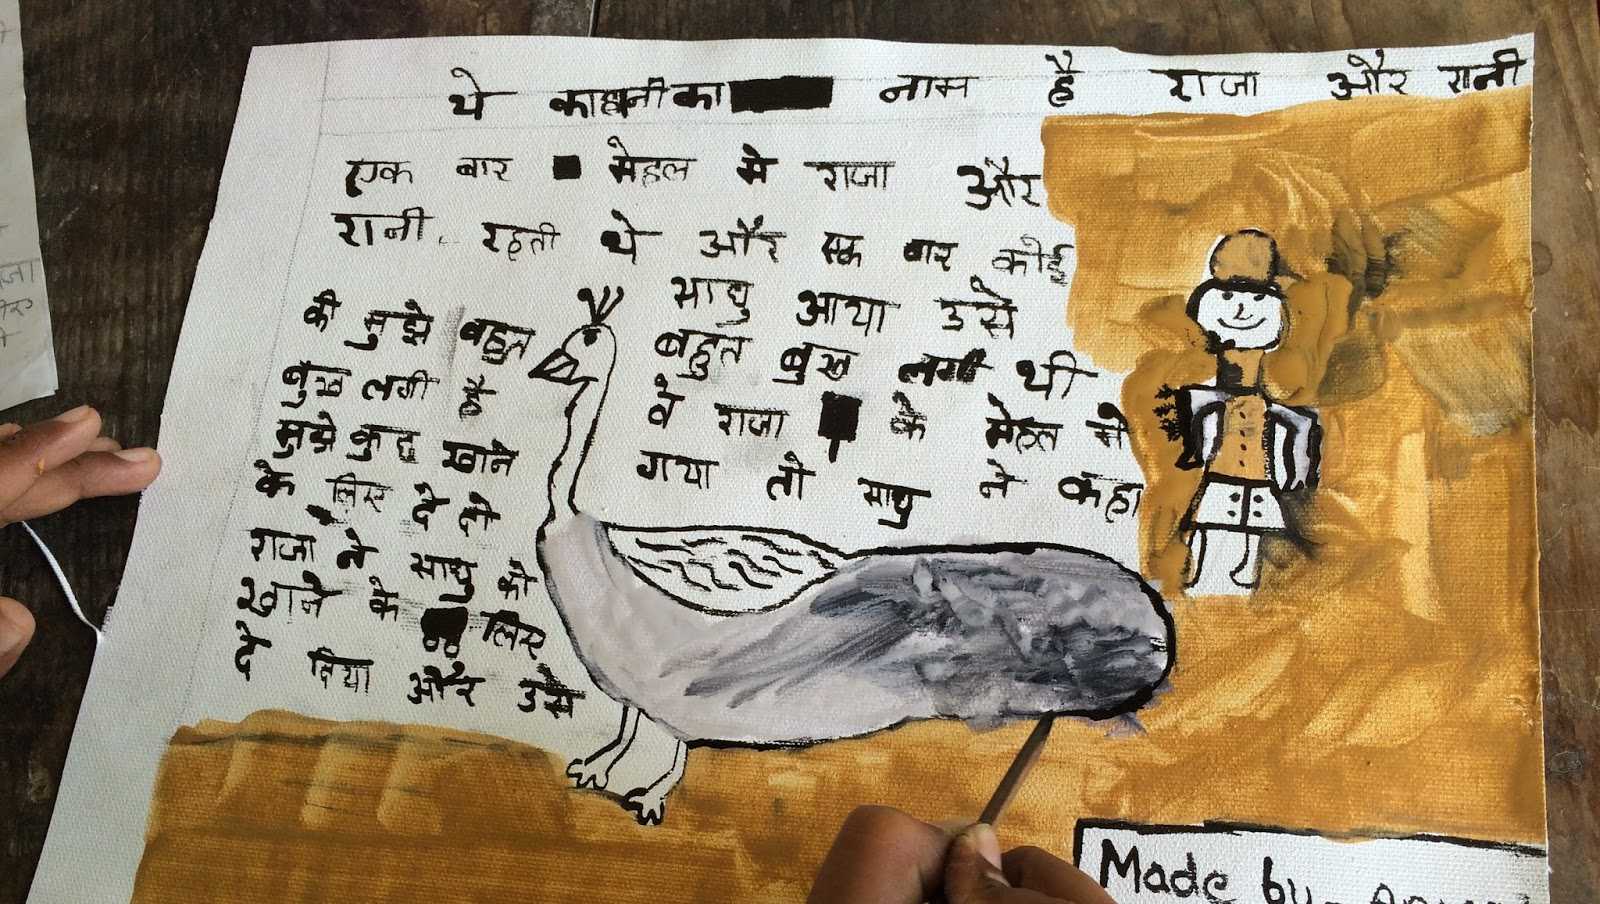 ये काहानी का नाम है राजा और रानी
एक बार मेहल मे राजा और
रानी रहती थे और एक बार कोई
साधु आया उसे
बहुत बुख लगी थी
वे राजा के मेहल मे
गया तो साधु ने कहा
की मुझे बहुत
बुख लगी है
मुझे कुछ खाने
के लिए दे दो
राजा ने साधु को
खाने के लिए
दे दिया और उसे
Made by-